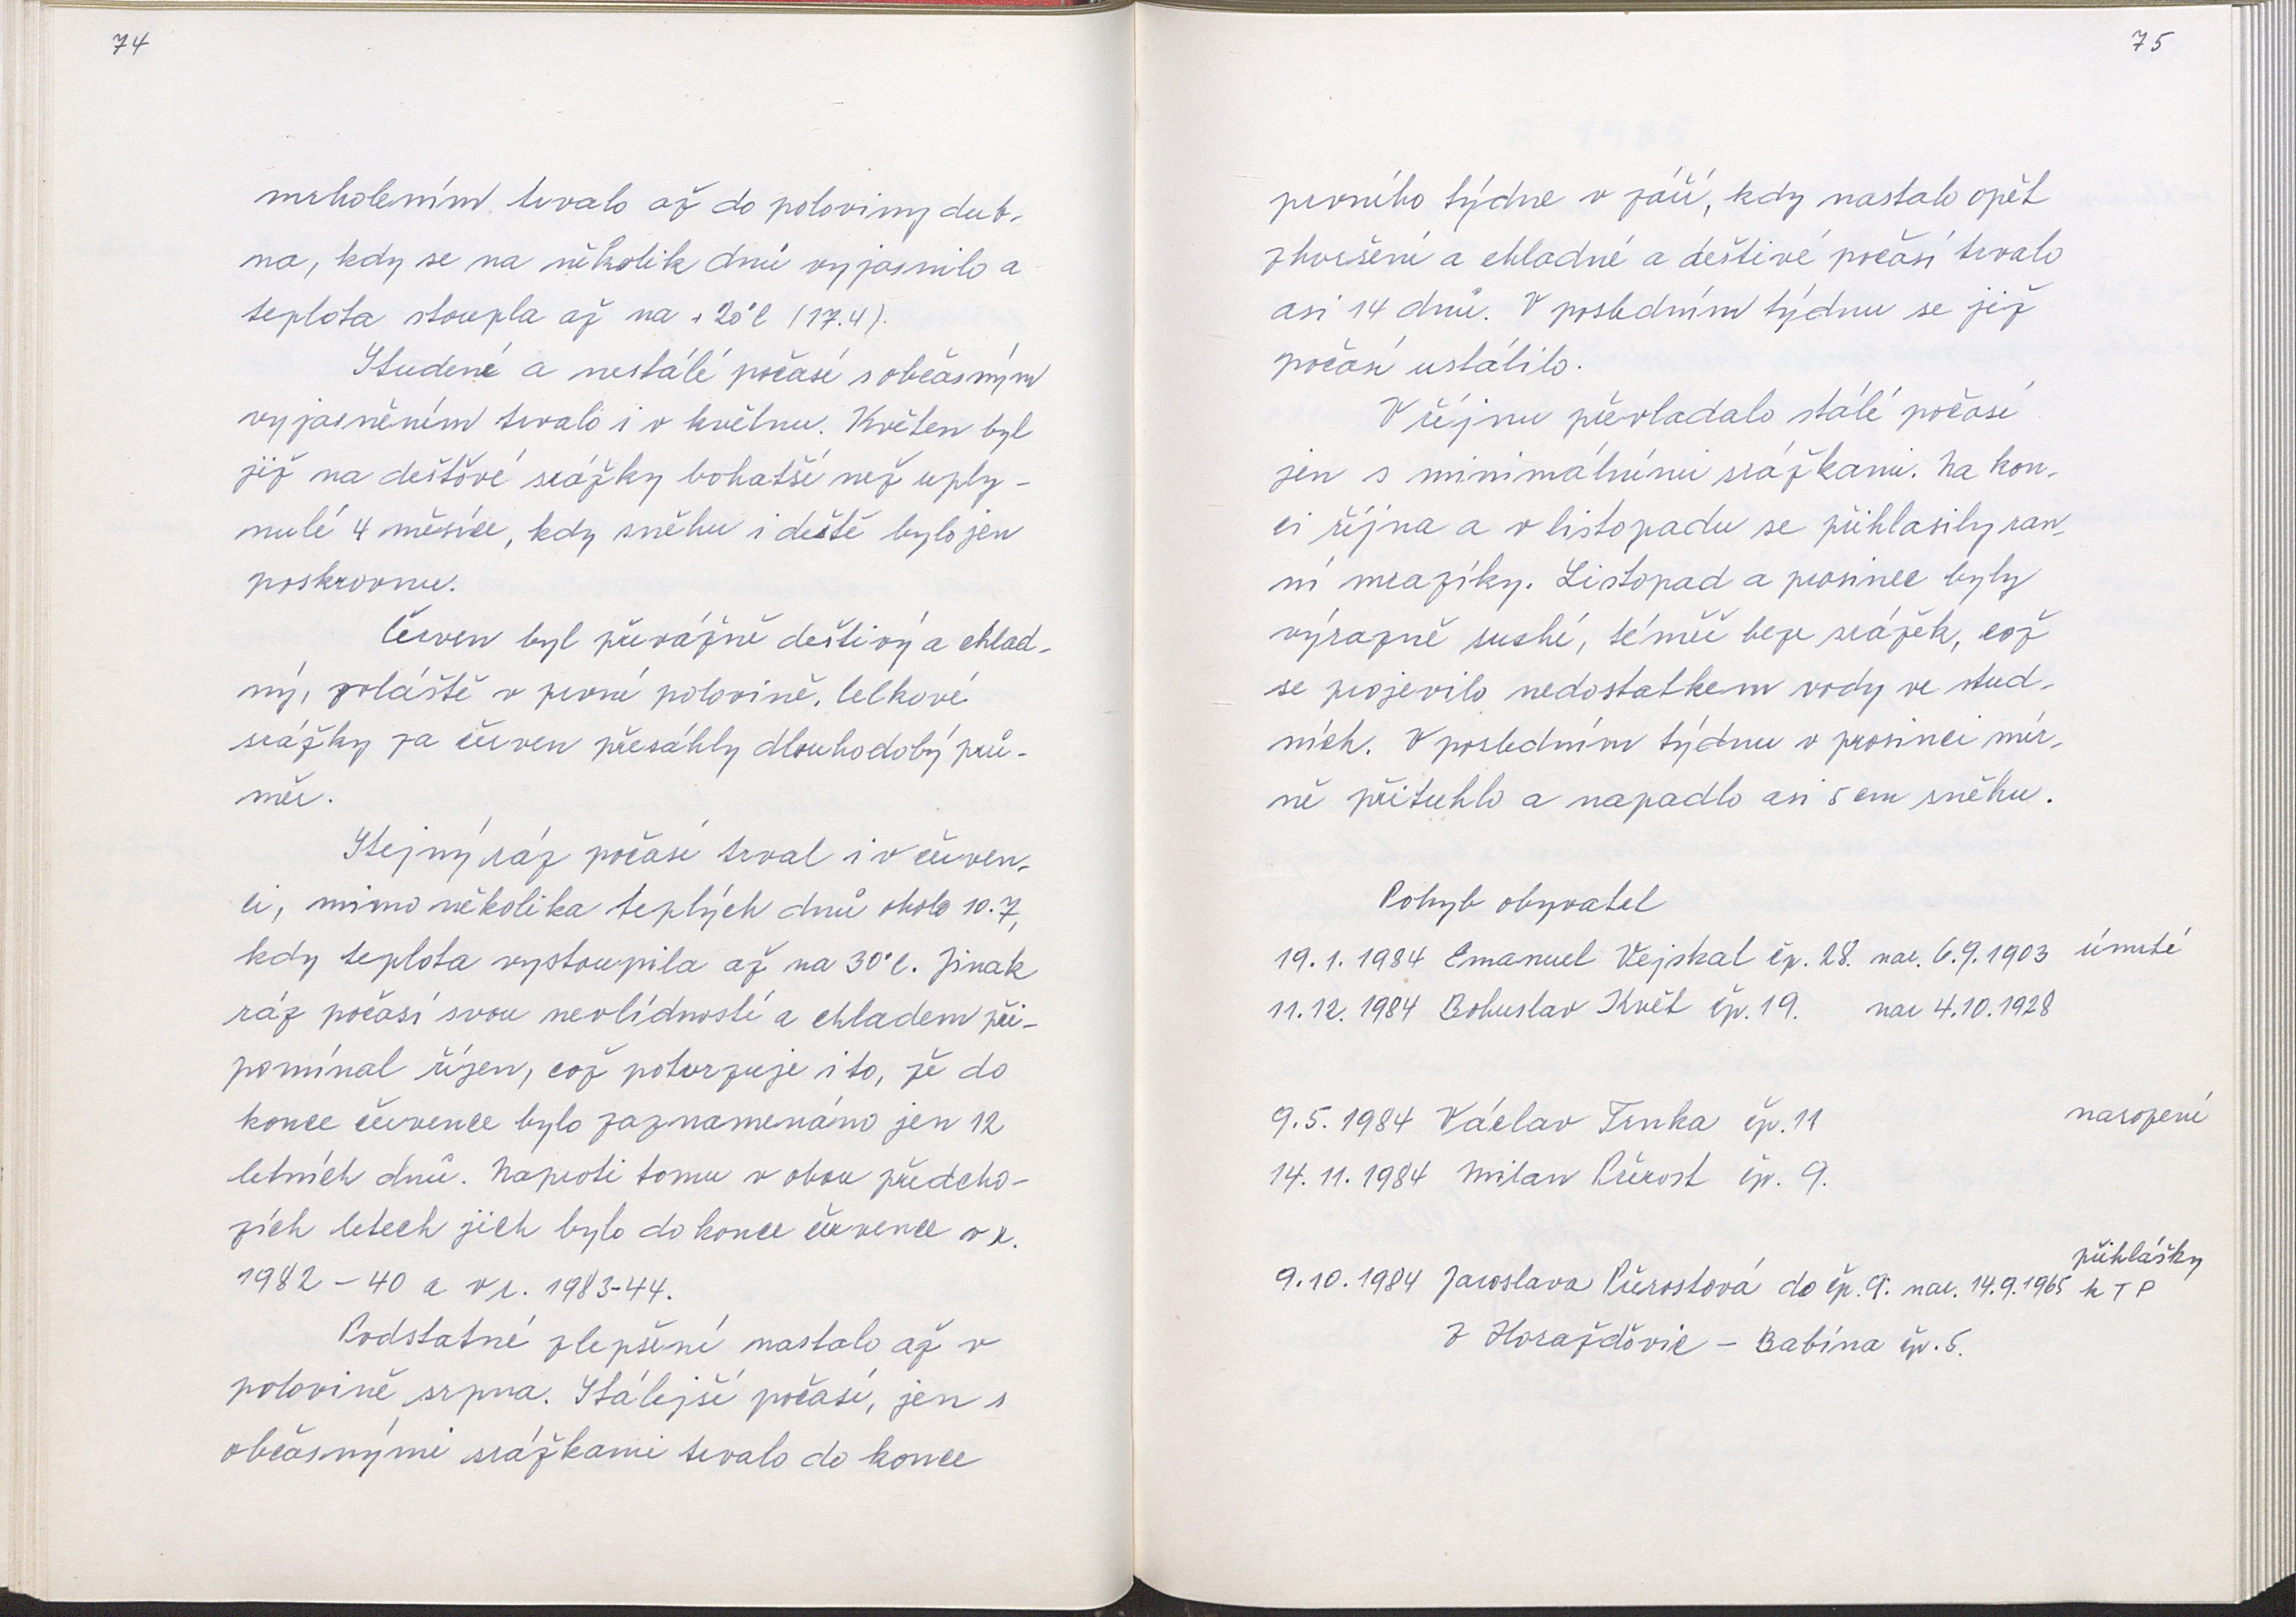 74
mrholením trvalo až do poloviny dub-
na, kdy se na několik dnů vyjasnilo a
teplota stoupla až na +20°C (17.4).
Studené a nestálé počasí s občasným
vyjasněním trvalo i v květnu. Květen byl
již na dešťové srážky bohatší než uply-
nulé 4 měsíce, kdy sněhu i deště bylo jen
poskrovnu.
Červen byl převážně deštivý a chlad-
ný, zvláště v první polovině. Celkové
srážky za červen přesáhly dlouhodobý prů-
měr.
Stejný ráz počasí trval i v červen-
ci, mimo několika teplých dnů okolo 10.7,
kdy teplota vystoupila až na 30°C. Jinak
ráz počasí svou nevlídností a chladem při-
pomínal říjen, což potvrzuje i to, že do
konce července bylo zaznamenáno jen 12
letních dnů. Naproti tomu v obou předcho-
zích letech jich bylo do konce července v r.
1982 - 40 a v r. 1983-44.
Podstatné zlepšení nastalo až v
polovině srpna. Stálejší počasí, jen s
občasnými srážkami trvalo do konce
75
prvního týdne v září, kdy nastalo opět
zhoršení a chladné a deštivé počasí trvalo
asi 14 dnů. V posledním týdnu se již
počasí ustálilo.
V říjnu převladalo stálé počasí
jen s minimálními srážkami. Na kon-
ci října a v listopadu se přihlasily ran-
ní mrazíky. Listopad a prosinec byly
výrazně suché, téměř beze srážek, což
se projevilo nedostatkem vody ve stud-
ních. V posledním týdnu v prosinci mír-
ně přituhlo a napadlo asi 5 cm sněhu.
Pohyb obyvatel
19.1.1984 Emanuel Vejskal čp. 28. nar. 6.9.1903 úmrtí
11.12.1984 Bohuslav Květ čp. 19. nar 4.10.1928
9.5.1984 Václav Trnka čp. 11 narození
14.11.1984 Milan Průrost čp. 9.
přihlášky
9.10.1984 Jaroslava Průrostová do čp. 9. nar. 14.9.1965 k TP
z Horažďovic - Babína čp. 5.